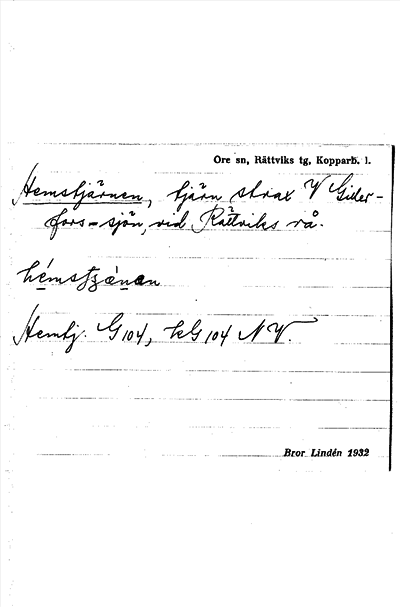 Ore sn, Rättviks tg, Kopparb. l.
Hemstjärnen, tjärn strax V Gider-
fors-sjön, vid Rättviks rå.
Hemtj. G 104, kG 104 NV.
Bror Lindén 1932